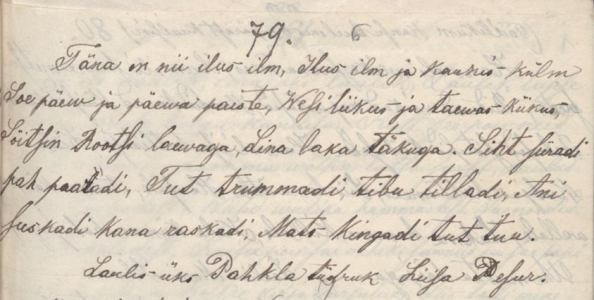 79.
Täna on nii ilus ilm, Ilus ilm ja kaunis-külm
Soe päew ja päewa paiste, Wesi liikus ja taewas kiikus,
Sõitsin Rootsi laewaga, Lina laka täkuga. Siht siiradi
pah paatadi, Tut trummadi, tibu tilladi, Ani
suskadi Kana raskadi, Mats Kingadi tut tuu.
Laulis üks Pahkla tüdruk Liisa